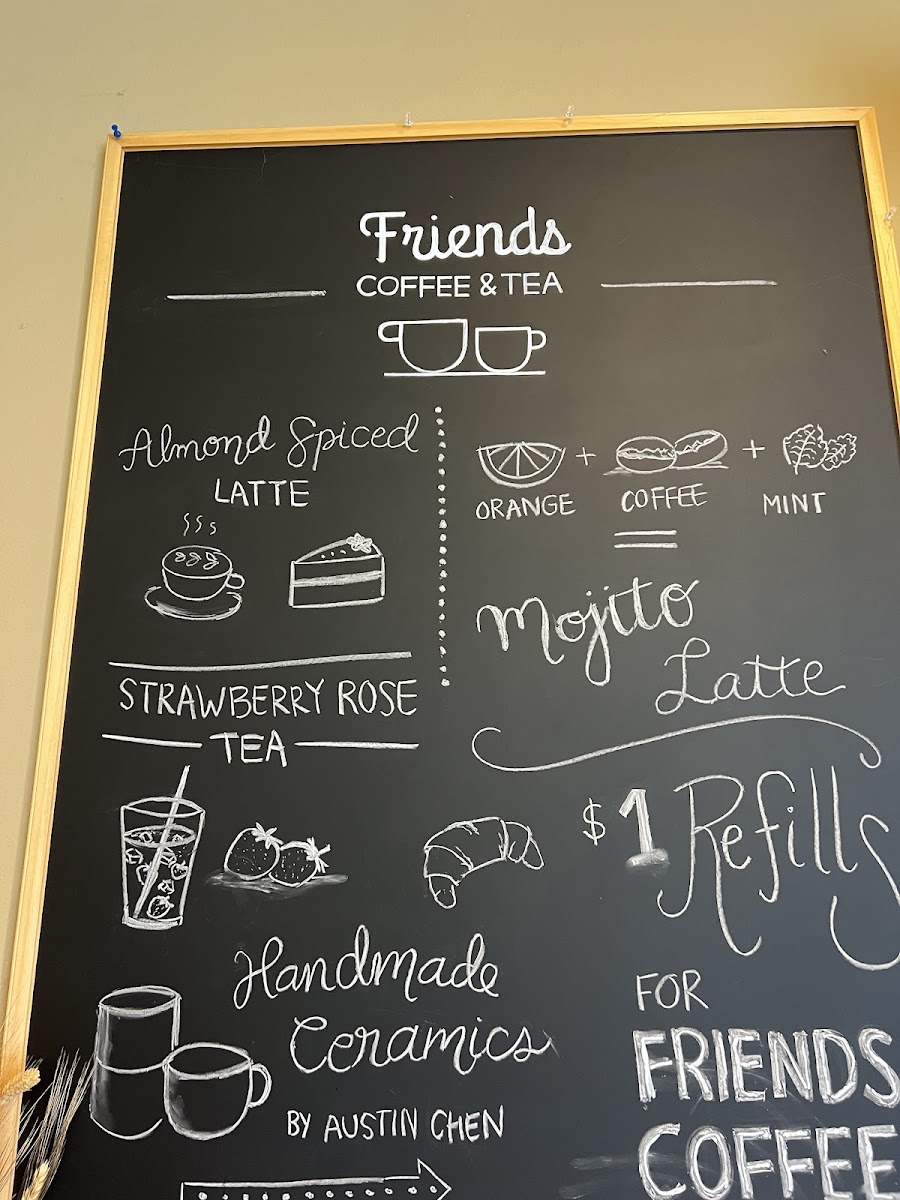 Friends
COFFEE & TEA
Almond Spiced
LATTE
ORANGE + COFFEE + MINT
=
Mojito
Latte
STRAWBERRY ROSE
TEA
$1 Refills
FOR
FRIENDS
COFFEE
Handmade
Ceramics
BY AUSTIN CHEN